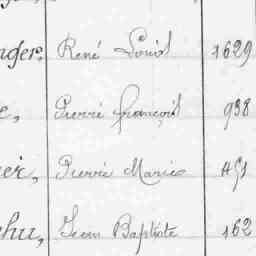 nger, René Louis 1629
e, Pierre François 938
er, Pierre Marie 451
hu, Jean Baptiste 162